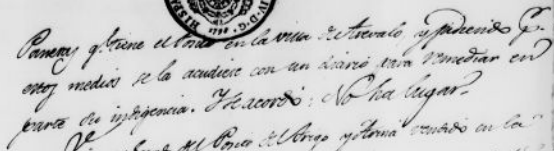 Paneras q.e tiene el Pósito en la villa de Arevalo, y pidiendo q.e
estos medios se la acudiese con un diario para remediar en
parte su indigencia. Se acordó: No ha lugar.
del Pósito del trigo y harina vendido en la